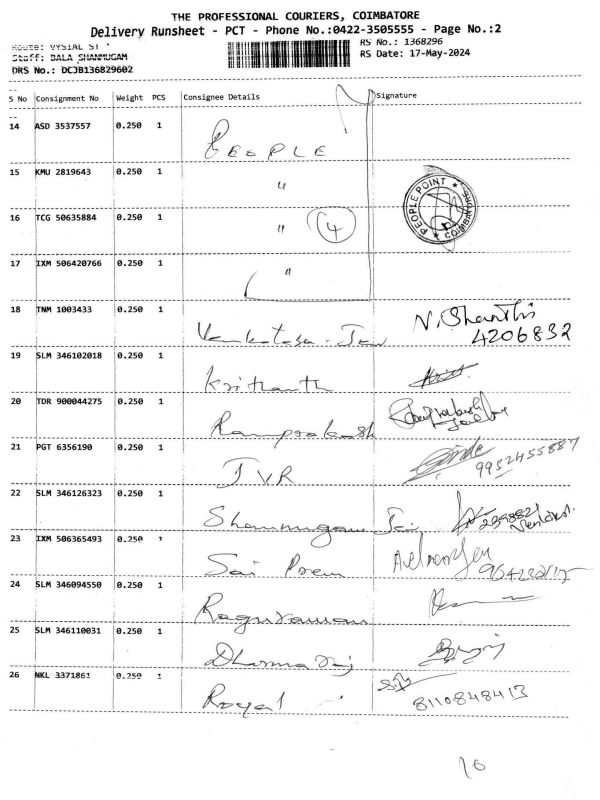 THE PROFESSIONAL COURIERS, COIMBATORE
Delivery Runsheet - PCT - Phone No.:0422-3505555 - Page No.:2
Route: VYSIAL ST RS No.: 1368296
Staff: BALA SHANMUGAM RS Date: 17-May-2024
DRS No.: DCJB136829602
S No Consignment No Weight PCS Consignee Details Signature
14 ASD 3537557 0.250 1 PEOPLE
15 KMU 2819643 0.250 1 "
PEOPLE POINT ★ COIMBATORE ★
16 TCG 50635884 0.250 1 " 4
17 IXM 506420766 0.250 1 "
18 TNM 1003433 0.250 1 Venkatesa N. Shanthi
4206832
19 SLM 346102018 0.250 1 Krithanth
20 TDR 900044275 0.250 1 Ramprakash
21 PGT 6356190 0.250 1 JVR 9952455887
22 SLM 346126323 0.250 1 Shanmugam
23 IXM 506365493 0.250 1 Sai Prem
24 SLM 346094550 0.250 1 Raguraman
25 SLM 346110031 0.250 1 Dharmaraj
26 NKL 3371861 0.250 1 Royal 8110848413